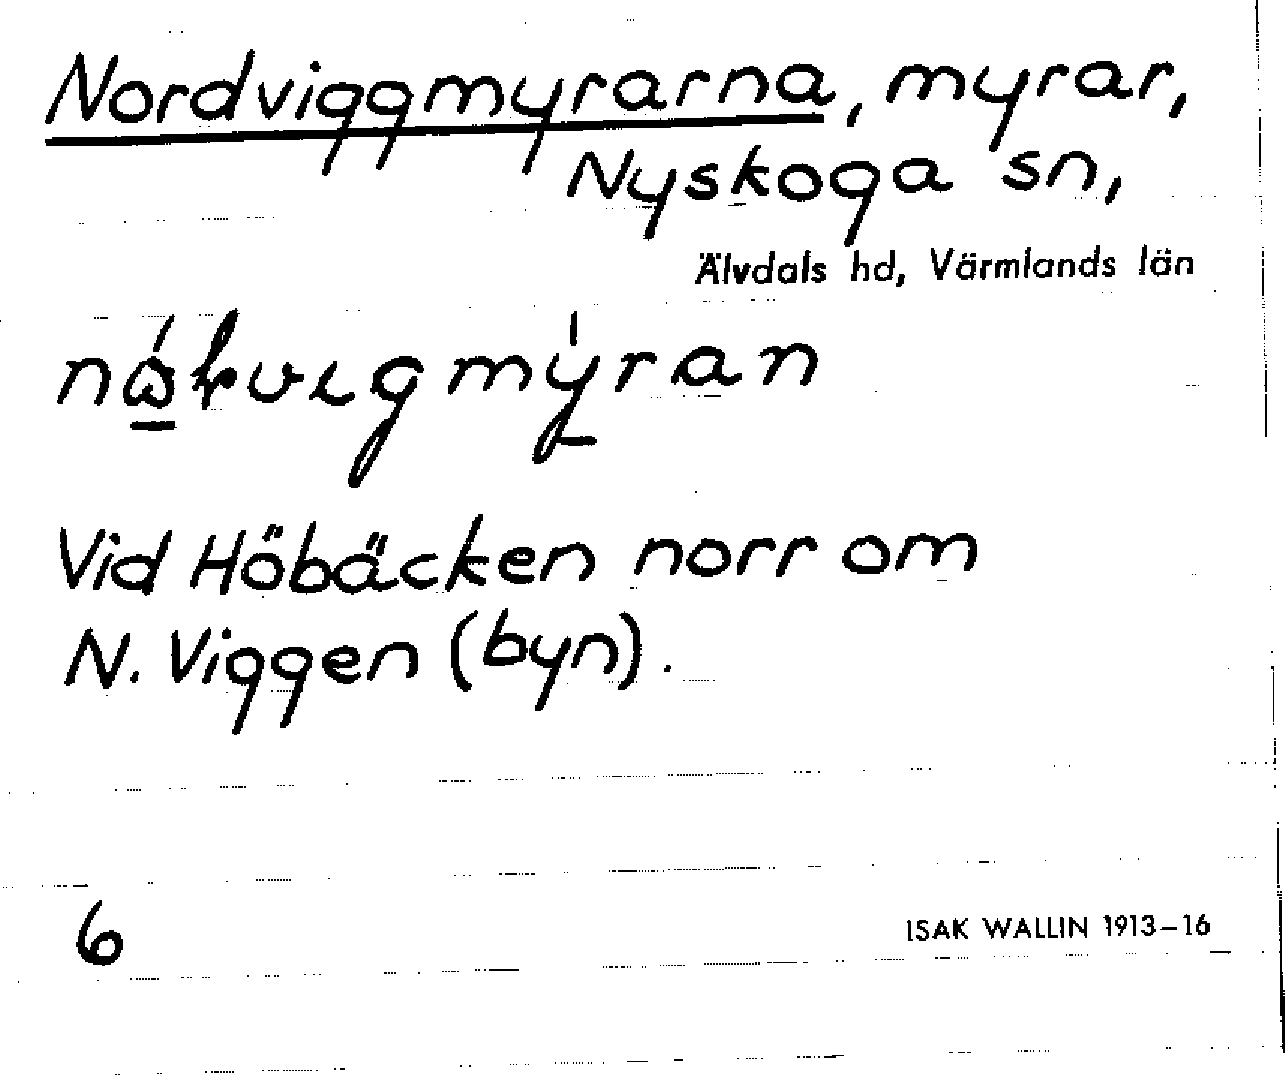 Nordviggmyrarna, myrar,
Nyskoga sn,
Älvdals hd, Värmlands län
Vid Höbäcken norr om
N. Viggen (byn).
6
ISAK WALLIN 1913–16